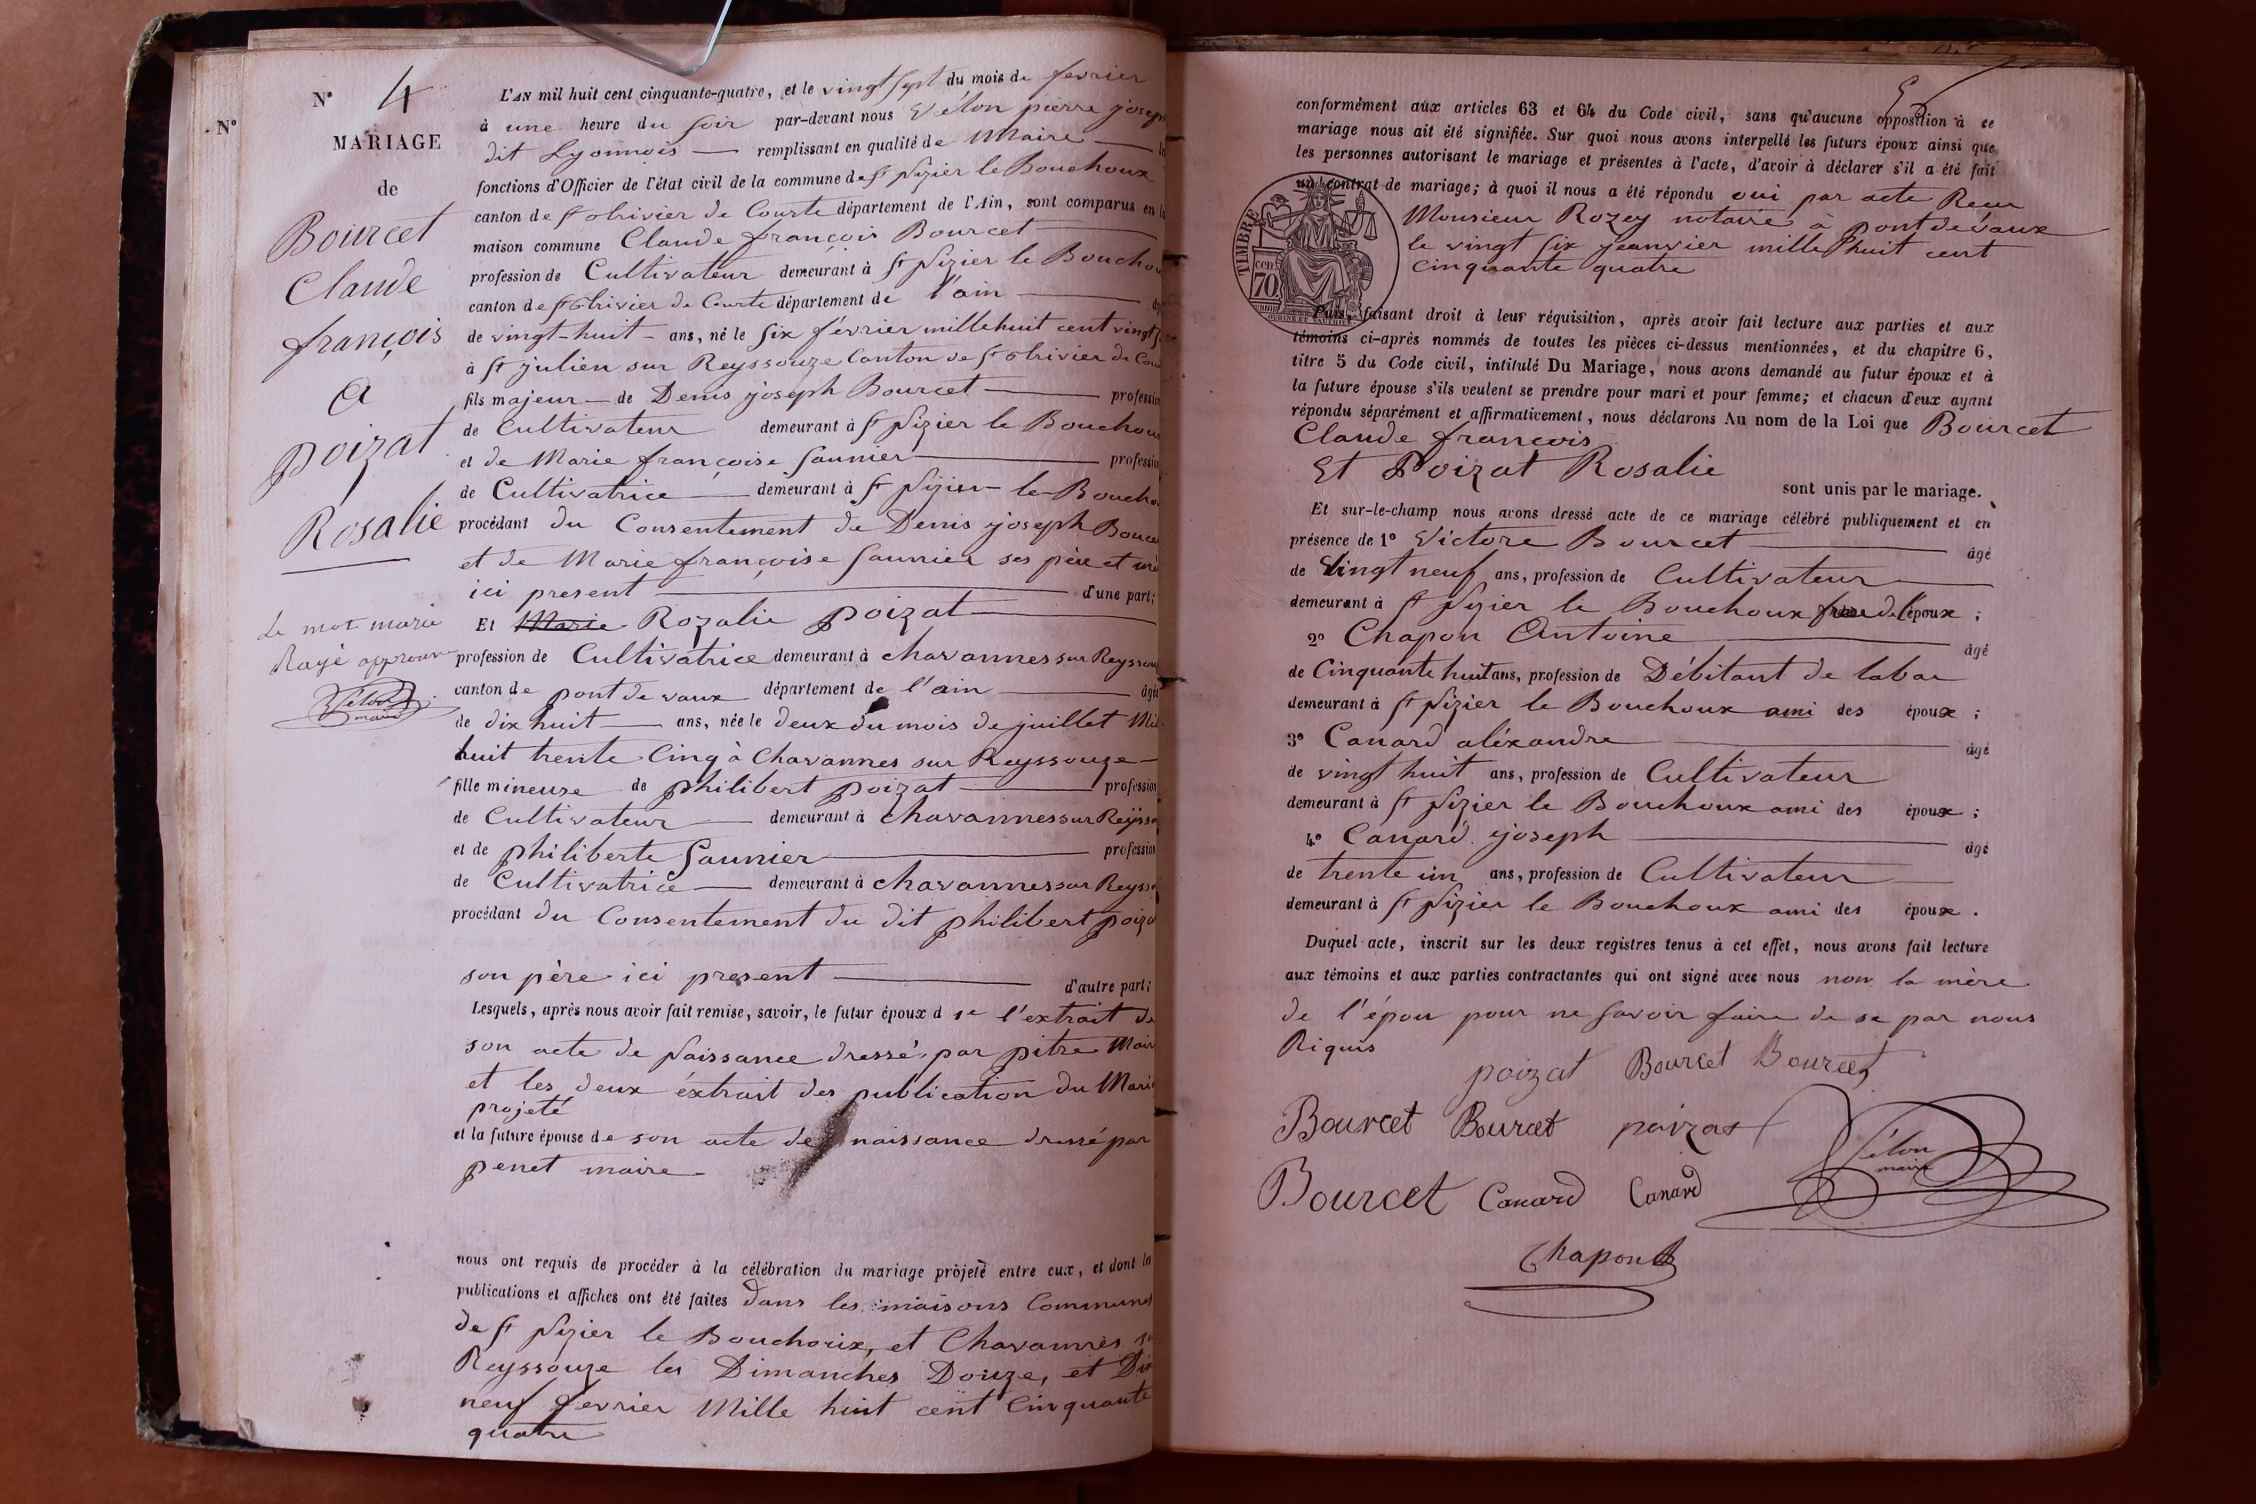 N°
N° 4
MARIAGE
de
Bourcet
Claude
françois
a
poizat
Rosalie
Le mot marie
Rayé approuvé
Vélon
maire
L'AN mil huit cent cinquante-quatre, et le vingt sept du mois de fevrier
à une heure du soir par-devant nous Vélon pierre joseph
dit Lyonnois remplissant en qualité de Maire
fonctions d'Officier de l'état civil de la commune de St Nizier le Bouchoux
canton de St trivier de Courte département de l'Ain, sont comparus en la
maison commune Claude françois Bourcet
profession de Cultivateur demeurant à St Nizier le Bouchou
canton de St trivier de Courte département de l'ain
de vingt-huit ans, né le Six février mille huit cent vingt
à St julien sur Reyssouze Canton de St trivier de Cour
fils majeur de Denis joseph Bourcet profession
de Cultivateur demeurant à St Nizier le Bouchoux
et de Marie françoise Saunier profession
de Cultivatrice demeurant à St Nizier le Boucho
procédant du Consentement de Denis joseph Bource
et de Marie françoise Saunier ses père et mè
ici present d'une part;
Et Marie Rozalie poizat
profession de Cultivatrice demeurant à chavannes sur Reyssou
canton de pont de vaux département de l'ain âgé
de dix huit ans, née le deux du mois de juillet Mil
huit trente Cinq à Chavannes sur Reyssouze
fille mineure de philibert poizat profession
de Cultivateur demeurant à chavannes sur Reysso
et de philiberte Saunier profession
de Cultivatrice demeurant à chavannes sur Reysso
procédant du Consentement du dit philibert poiza
son père ici present d'autre part;
Lesquels, après nous avoir fait remise, savoir, le futur époux d 1e l'extrait de
son acte de Naissance dressé par pitre Mair
et les deux éxtrait des publication du Mari
projeté
et la future épouse de son acte de naissance dressé par
penet maire
nous ont requis de procéder à la célébration du mariage projeté entre eux, et dont les
publications et affiches ont été faites Dans les maisons Communes
de St Nizier le Bouchoux, et Chavannes su
Reyssouze les Dimanches Douze, et Dix
neuf fevrier Mille huit cent Cinquante
quatre
conformément aux articles 63 et 64 du Code civil, sans qu'aucune opposition à ce
mariage nous ait été signifiée. Sur quoi nous avons interpellé les futurs époux ainsi que
les personnes autorisant le mariage et présentes à l'acte, d'avoir à déclarer s'il a été fait
un contrat de mariage; à quoi il nous a été répondu oui par acte Recu
Monsieur Rozey notaire à pont de vaux
le vingt six jeanvier mille huit cent
cinquante quatre
TIMBRE
70
Puis, faisant droit à leur réquisition, après avoir fait lecture aux parties et aux
témoins ci-après nommés de toutes les pièces ci-dessus mentionnées, et du chapitre 6,
titre 5 du Code civil, intitulé Du Mariage, nous avons demandé au futur époux et à
la future épouse s'ils veulent se prendre pour mari et pour femme; et chacun d'eux ayant
répondu séparément et affirmativement, nous déclarons Au nom de la Loi que Bourcet
Claude françois
Et Poizat Rosalie
sont unis par le mariage.
Et sur-le-champ nous avons dressé acte de ce mariage célébré publiquement et en
présence de 1° Victore Bourcet âgé
de Vingt neuf ans, profession de Cultivateur
demeurant à St Nizier le Bouchoux frere de l'époux ;
2° Chapon Antoine âgé
de Cinquante huit ans, profession de Débitant de tabac
demeurant à St Nizier le Bouchoux ami des époux ;
3° Canard aléxandre âgé
de vingt huit ans, profession de Cultivateur
demeurant à St Nizier le Bouchoux ami des époux ;
4° Canard joseph âgé
de trente un ans, profession de Cultivateur
demeurant à St Nizier le Bouchoux ami des époux .
Duquel acte, inscrit sur les deux registres tenus à cet effet, nous avons fait lecture
aux témoins et aux parties contractantes qui ont signé avec nous non la mère
de l'épou pour ne savoir faire de se par nous
Riquis
poizat Bourcet Bourcet
Bourcet Bourcet poizat
Vélon
maire
Bourcet Canard Canard
Chapon